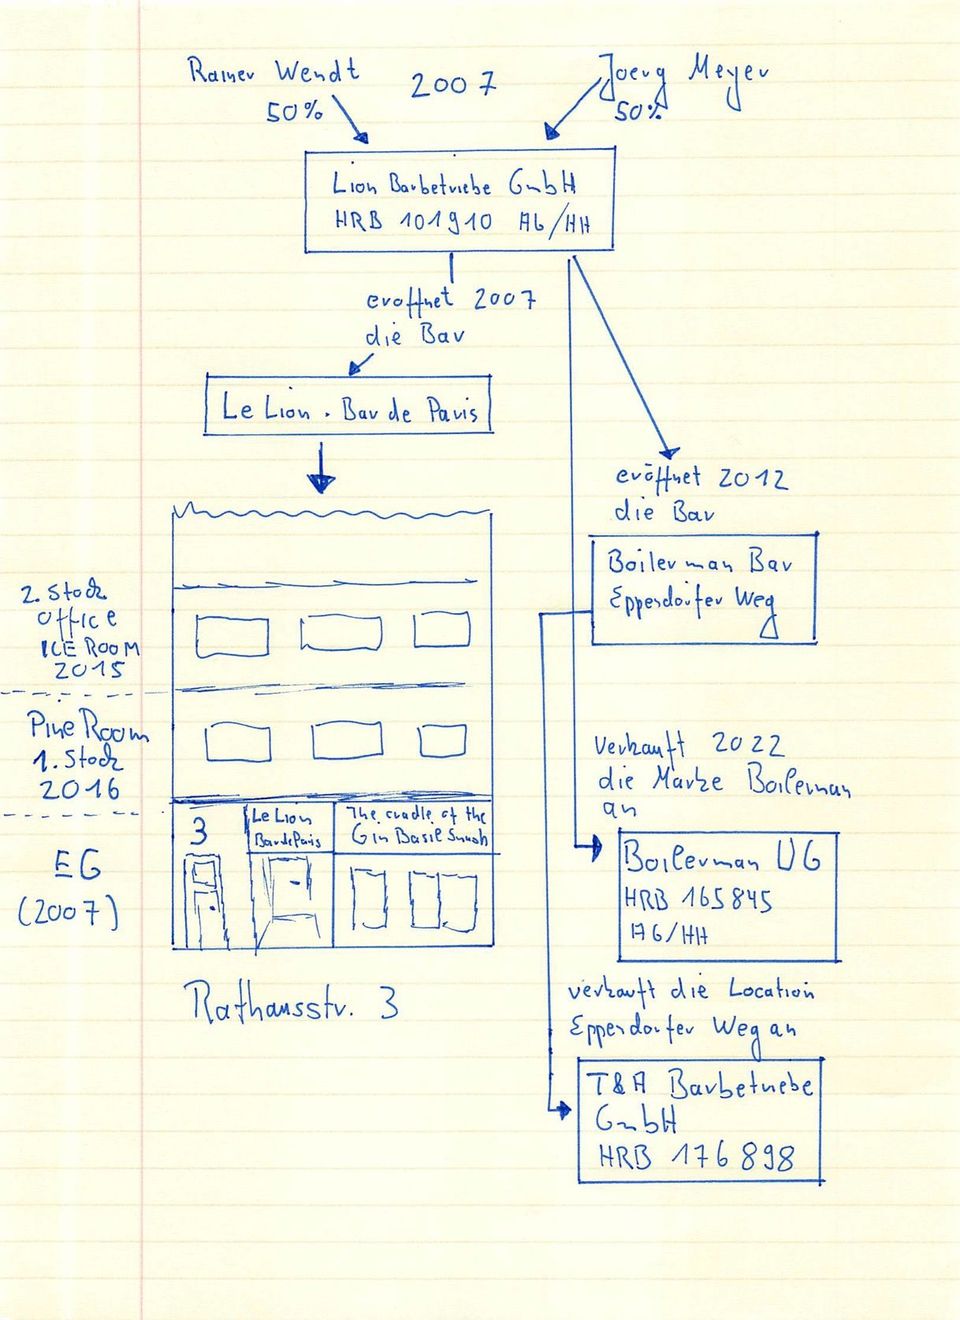 Rainer Wendt
50%
2007
Joerg Meyer
50%
Lion Barbetriebe GmbH
HRB 101910 AG/HH
eröffnet 2007
die Bar
Le Lion . Bar de Paris
eröffnet 2012
die Bar
Boilerman Bar
Eppendorfer Weg
2. Stock
Office
ICE ROOM
2015
Pine Room
1. Stock
2016
EG
(2007)
3
Le Lion
Bar de Paris
The cradle of the
Gin Basil Smash
Rathausstr. 3
Verkauft 2022
die Marke Boilerman
an
Boilerman UG
HRB 165845
AG/HH
verkauft die Location
Eppendorfer Weg an
T&A Barbetriebe
GmbH
HRB 176898